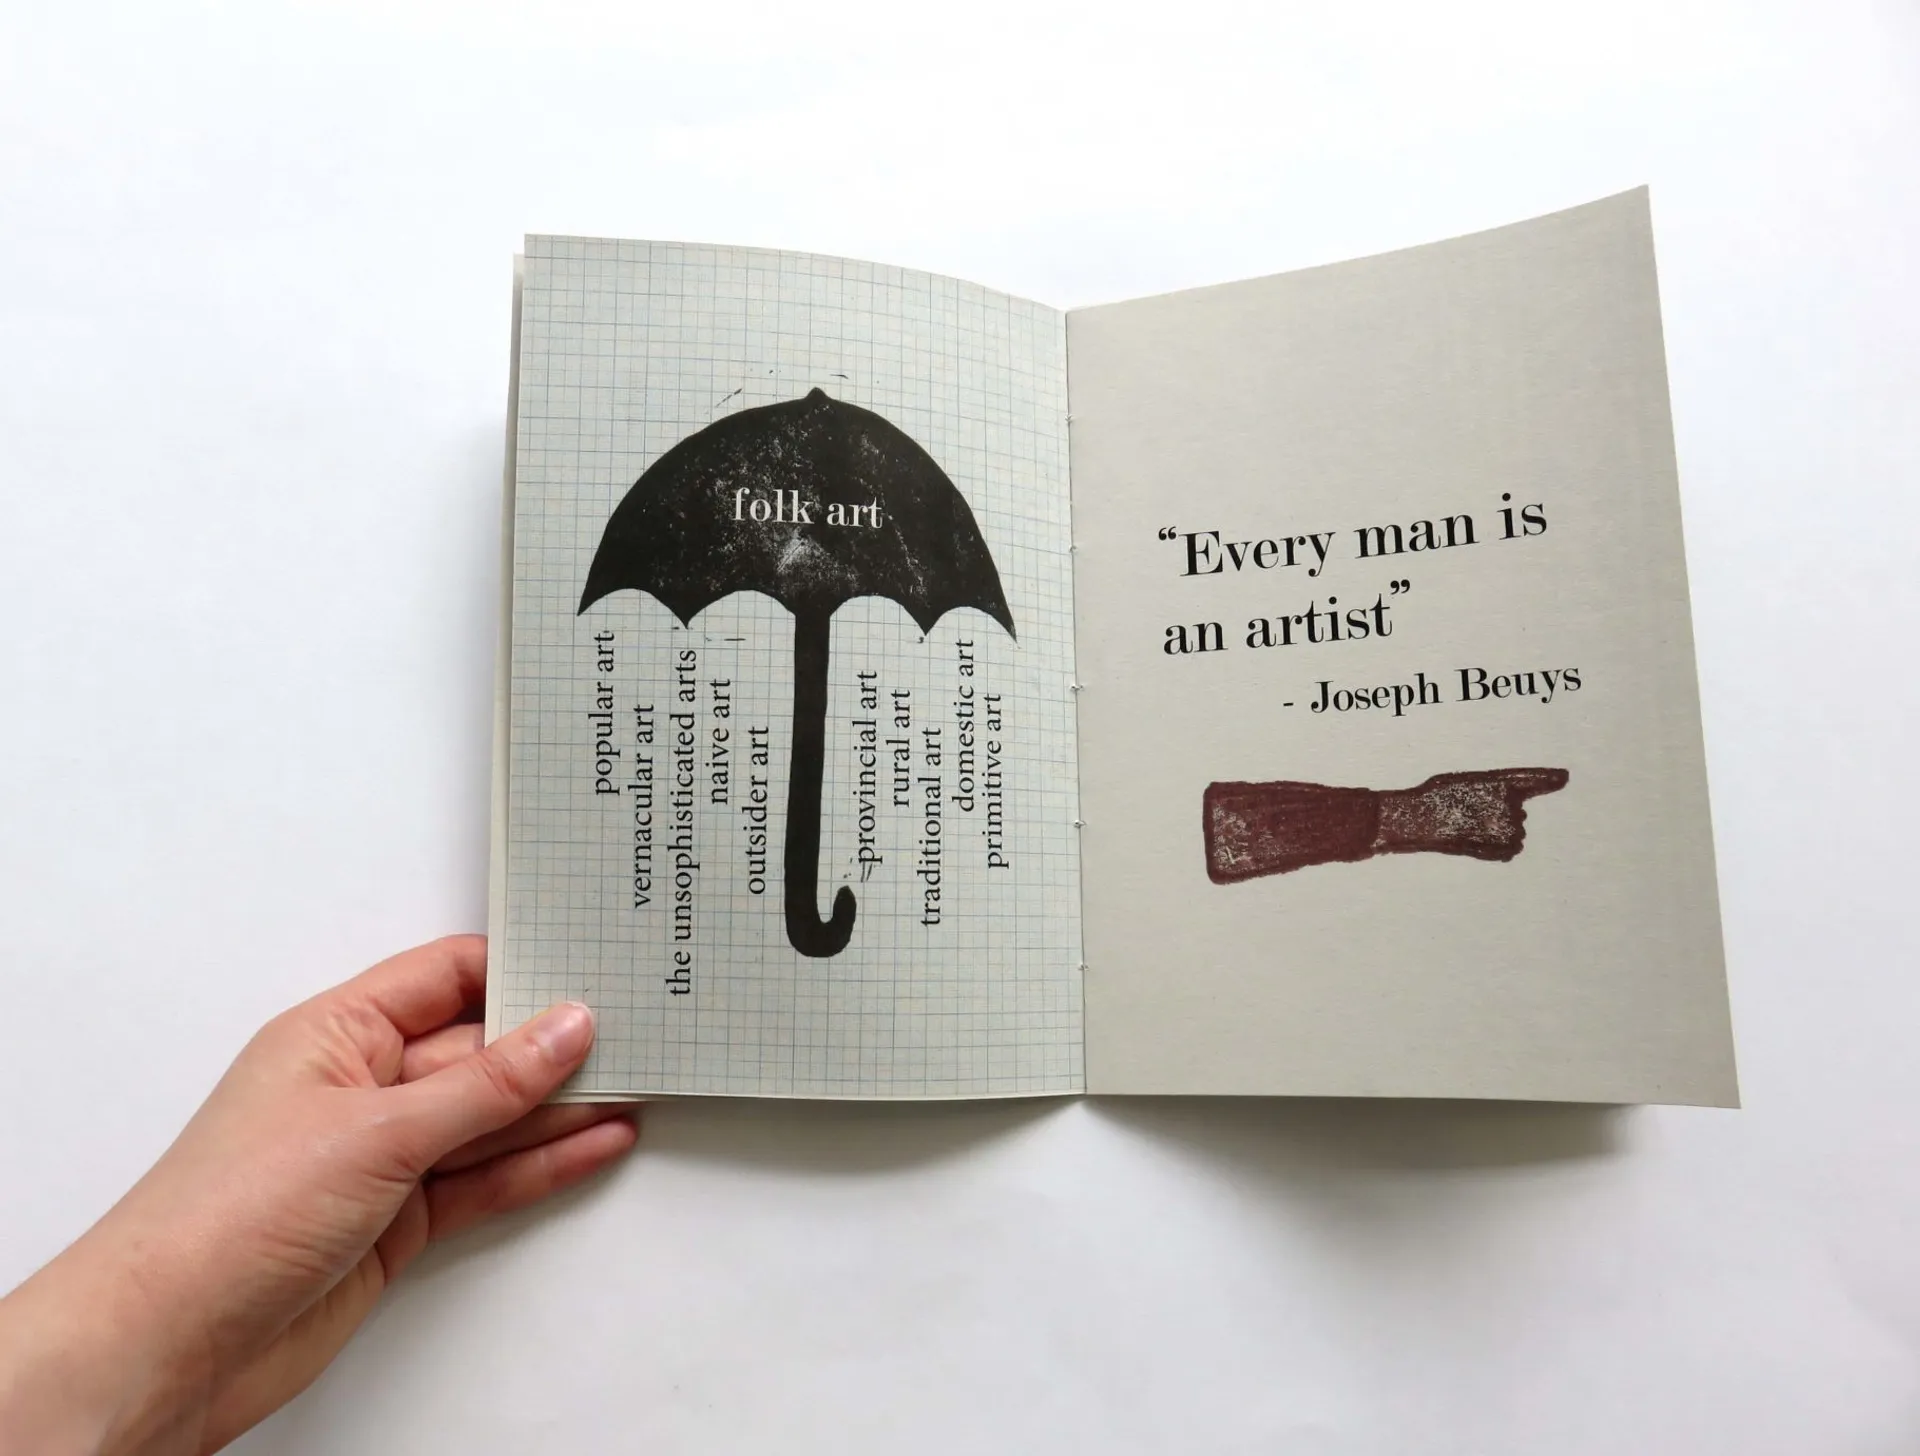 folk art
popular art
vernacular art
the unsophisticated arts
naive art
outsider art
provincial art
rural art
traditional art
domestic art
primitive art
“Every man is
an artist”
- Joseph Beuys